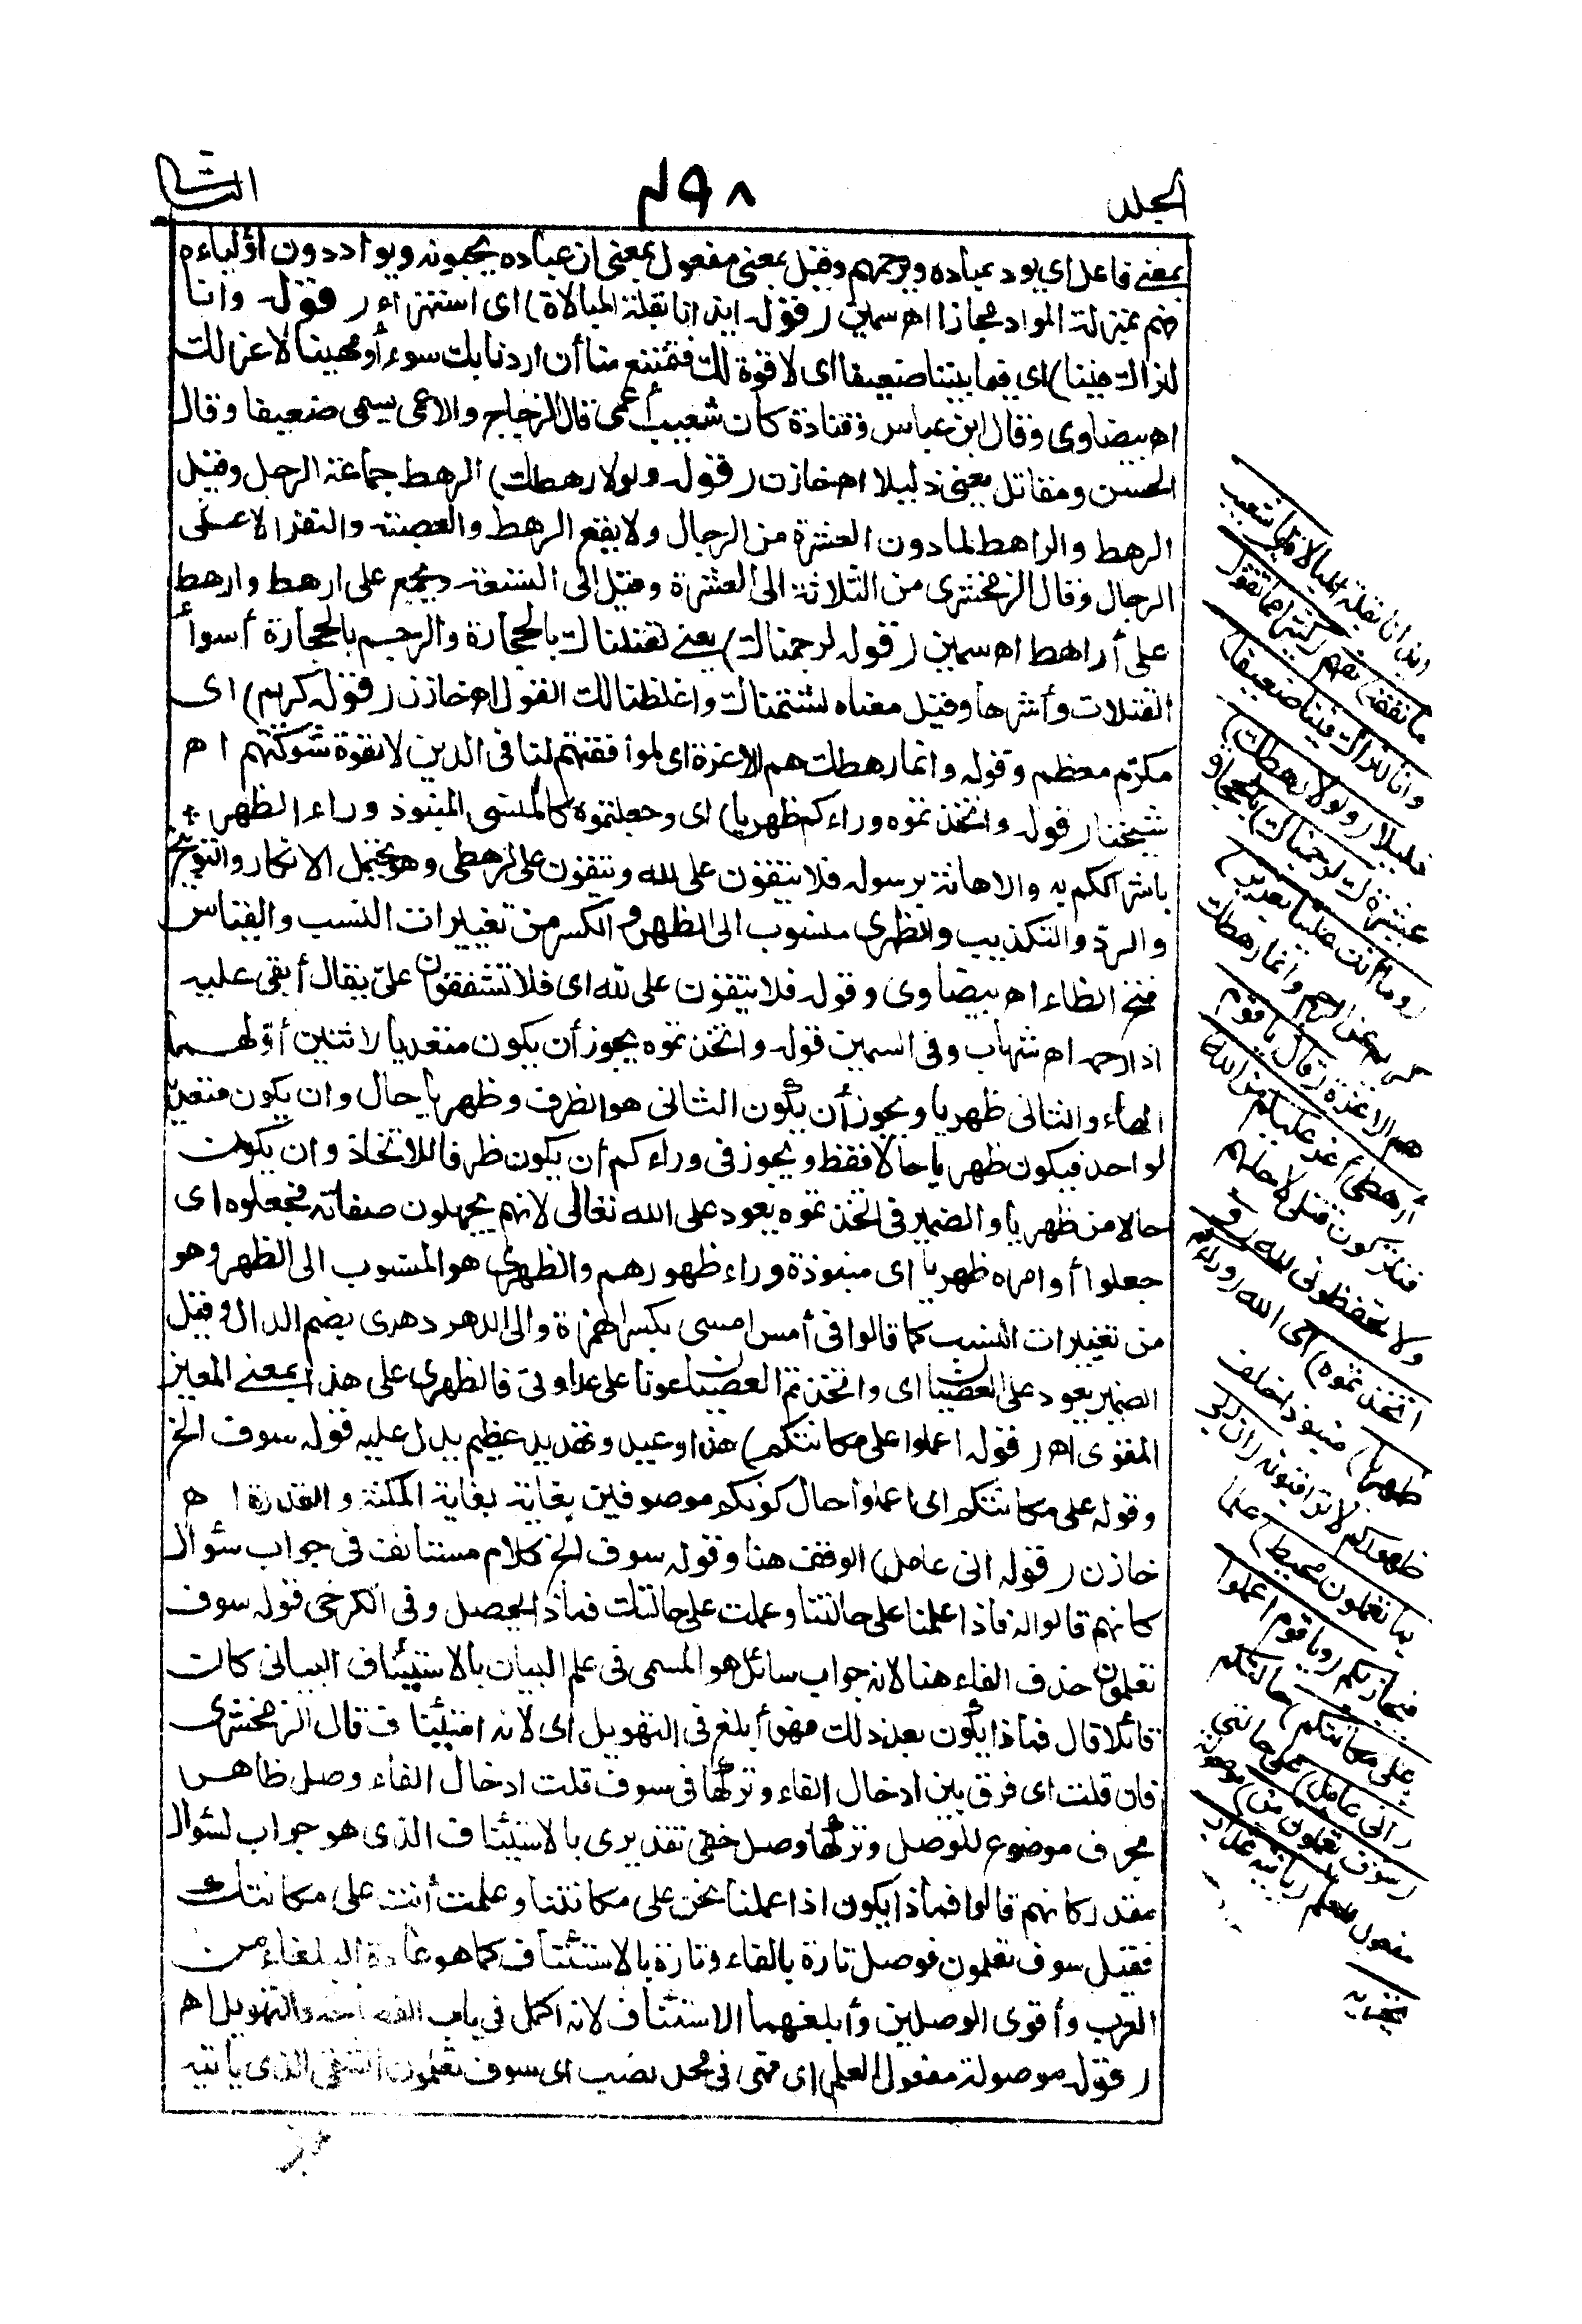 الجلد
٤٩٨
الثانى
بمعنى فاعل اى يود عباده ويرحمهم وقيل بمعنى مفعول بمعنى ان عباده يحبونه ويواددون أولياءه
فهم بمنزلة المواد مجازا اه سمين ( قوله ايذانا بقلة المبالاة) اى استهزاء ( قوله وانا
لنراك فينا) اى فيما بيننا ضعيفا اى لا قوة لك فتمتنع منا أن اردنا بك سوء أو مهينا لا عز لك
اه بيضاوى وقال ابن عباس وقتادة كان شعيب أعمى قال الزجاج والاعمى يسمى ضعيفا وقال
الحسن ومقاتل يعنى ذليلا اه خازن ( قوله ولولا رهطك) الرهط جماعة الرجل وقيل
الرهط والراهط لما دون العشرة من الرجال ولا يقع الرهط والعصبة والنفر الا على
الرجال وقال الزمخشرى من الثلاثة الى العشرة وقيل الى التسعة ويجمع على ارهط وارهط
على أراهط اه سمين ( قوله لرجمناك) يعنى لقتلناك بالحجارة والرجم بالحجارة أسوأ
القتلات وأشرها وقيل معناه لشتمناك واغلظنا لك القول اه خازن ( قوله كريم) اى
مكرّم معظم وقوله وانما رهطك هم الاعزة اى لموافقتهم لنا فى الدين لا لقوة شوكتهم اه
شيخنا ( قوله واتخذتموه وراءكم ظهريا) اى وجعلتموه كالمنسى المنبوذ وراء الظهر
باشراككم به والاهانة برسوله فلا تتقون على الله وتتقون على لرهطى وهو يحتمل الانكار والتوبيخ
والردّ والتكذيب والظهرى منسوب الى الظهر والكسر من تغييرات النسب والقياس
فتح الظاء اه بيضاوى وقوله فلا تتقون على لله اى فلا تشفقون علىّ يقال أبقى عليه
اذا رحمه اه شهاب وفى السمين قوله واتخذتموه يجوز أن يكون متعديا لاثنين أوّلهما
الهاء والثانى ظهريا ويجوز أن يكون الثانى هو الظرف وظهريا حال وان يكون متعديا
لواحد فيكون ظهريا حالا فقط ويجوز فى وراءكم أن يكون ظرفا للاتخاذ وان يكون
حالا من ظهريا والضمير فى اتخذتموه يعود على الله تعالى لانهم يجهلون صفاته فجعلوه اى
جعلوا أوامره ظهريا اى منبوذة وراء ظهورهم والظهرى هو المنسوب الى الظهر وهو
من تغييرات النسب كما قالوا فى أمس امسى بكسر الهمزة والى الدهر دهرى بضم الدال وقيل
الضمير يعود على العصيان اى واتخذتم العصيان عونا على عداوتى فالظهرى على هذا بمعنى المعين
المقوى اه ( قوله اعملوا على مكانتكم) هذا وعيد وتهديد عظيم يدل عليه قوله سوف الخ
وقوله على مكانتكم اى اعملوا حال كونكم موصوفين بغاية بغاية المكنة والقدرة اه
خازن ( قوله انى عامل) الوقف هنا وقوله سوف الخ كلام مستأنف فى جواب سؤال
كانهم قالوا له فاذا علمنا على حالتنا وعملت على حالتك فماذا يحصل وفى الكرخى قوله سوف
تعلمون حذف الفاء هنا لانه جواب سائل هو المسمى فى علم البيان بالاستئناف البيانى كان
قائلا قال فماذا يكون بعد ذلك فهو أبلغ فى التهويل اى لانه استئناف قال الزمخشرى
فان قلت اى فرق بين ادخال الفاء وتركها فى سوف قلت ادخال الفاء وصل ظاهر
بحرف موضوع للوصل وتركها وصل خفى تقديرى بالاستئناف الذى هو جواب لسؤال
مقدر كانهم قالوا فماذا يكون اذا عملنا نحن على مكانتنا وعلمت أنت على مكانتك
فقيل سوف تعلمون فوصل تارة بالفاء وتارة بالاستئناف كما هو عادة البلغاء من
العرب وأقوى الوصلين وأبلغهما الاستئناف لانه اكمل فى باب والتهويل اه
( قوله موصولة مفعول العلم) اى فهى فى محل نصب اى سوف تعلمون الذى يأتيه
ايذانا بقلة المبالاة (يا شعيب
ما نفقه) نفهم (كثيرا مما تقول
وانا لنراك فينا ضعيفا)
ذليلا (ولولا رهطك)
عشيرتك (لرجمناك) بالحجارة
(وما أنت علينا بعزيز)
كريم عن الرجم وانما رهطك
هم الاعزة (قال يا قوم
أرهطى أعز عليكم من الله)
فتتركون قتلى لاجلهم
ولا تحفظونى لله (و
اتخذتموه) اى الله (وراءكم
ظهريا) منبوذا خلف
ظهوركم لا تراقبونه (ان ربى
بما تعملون محيط) علما
فيجازيكم (ويا قوم اعملوا
على مكانتكم) حالتكم
(انى عامل) على حالتى
(سوف تعلمون من) موصولة
مفعول العلم (يأتيه عذاب
يخزيه